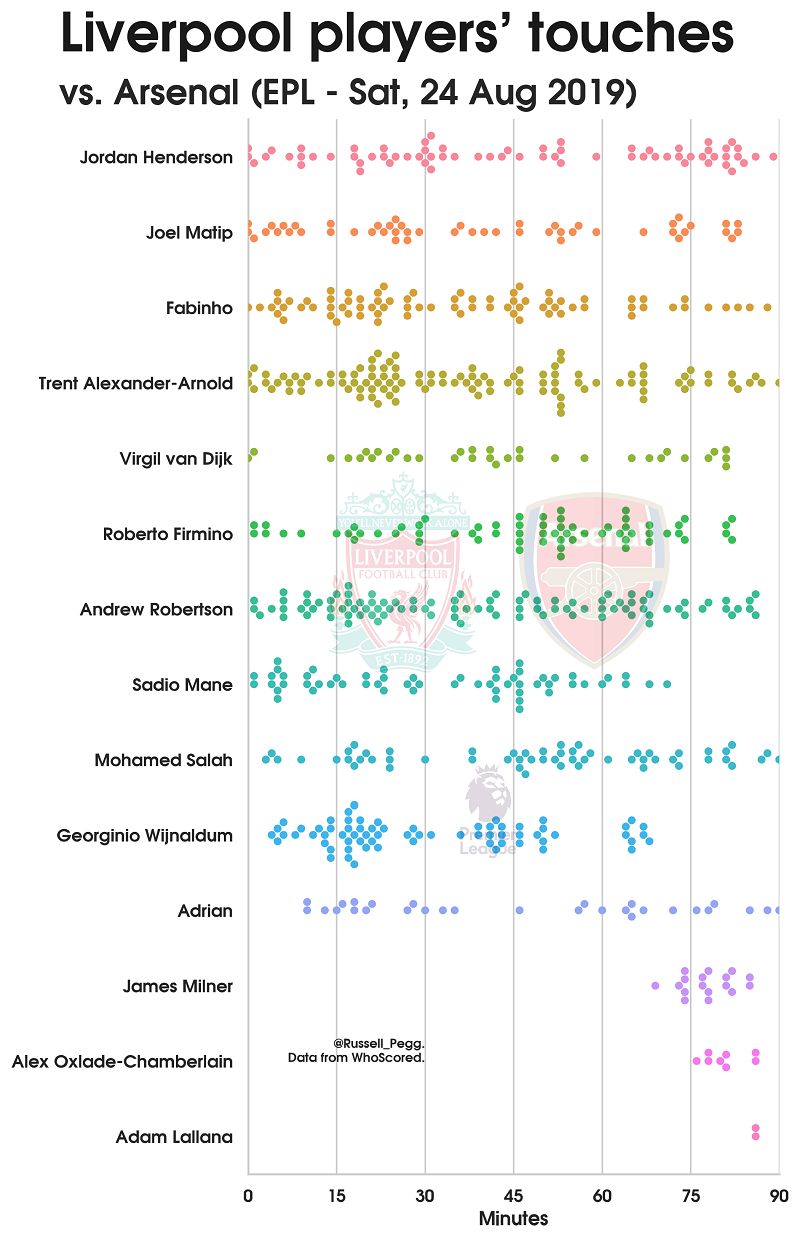 Liverpool players’ touches
vs. Arsenal (EPL - Sat, 24 Aug 2019)
Jordan Henderson
Joel Matip
Fabinho
Trent Alexander-Arnold
Virgil van Dijk
YOU'LL NEVER WALK ALONE
Roberto Firmino
Arsenal
LIVERPOOL
FOOTBALL CLUB
Andrew Robertson
EST·1892
Sadio Mane
Mohamed Salah
Georginio Wijnaldum
Premier
League
Adrian
James Milner
@Russell_Pegg.
Data from WhoScored.
Alex Oxlade-Chamberlain
Adam Lallana
0 15 30 45 60 75 90
Minutes